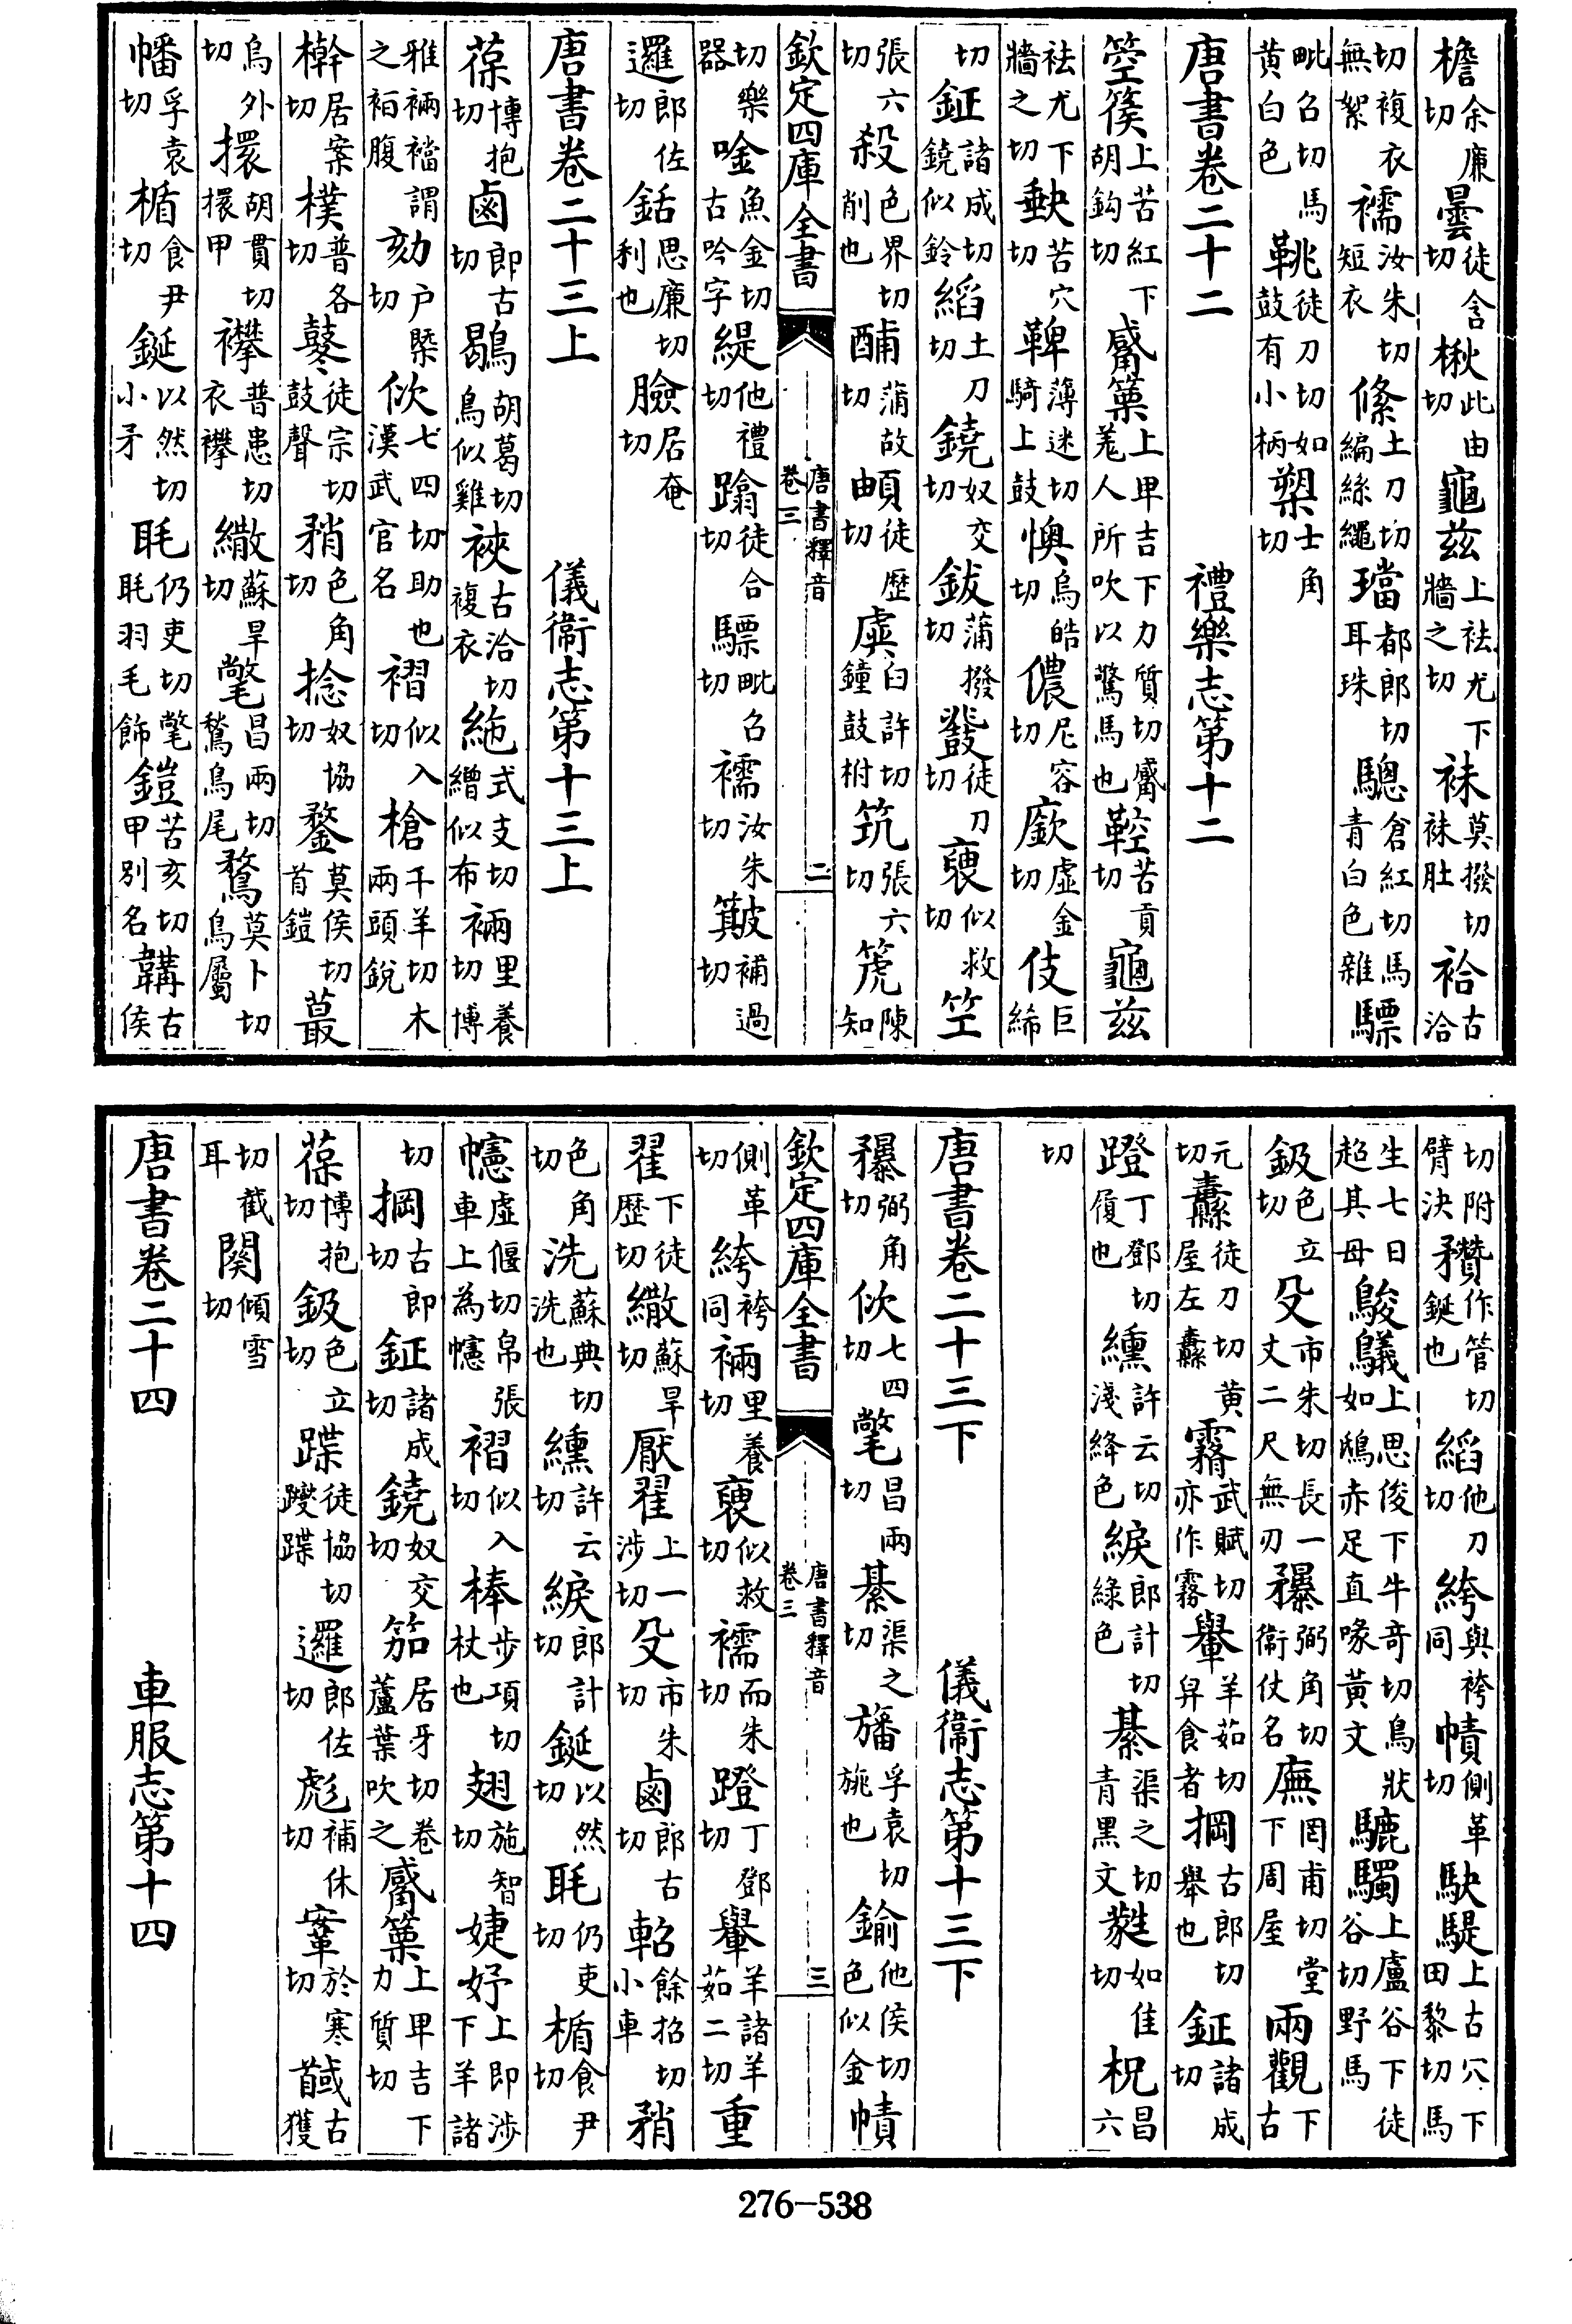 檐余廉切曇徒含切楸此由切龜茲上祛尤下牆之切袜莫撥切袜肚袷古洽
切複衣無絮襦汝朱切短衣絛土刀切編絲繩璫都郎切耳珠驄倉紅切馬青白色雜驃
毗召切馬黄白色鞉徒刀切如鼓有小柄槊士角切
唐書卷二十二 禮樂志第十二
箜篌上苦紅下胡鈎切觱篥上畢吉下力質切觱羗人所吹以驚馬也鞚苦貢切龜茲
祛尤下牆之切苦穴切鞞薄迷切騎上鼓懊烏皓切儂尼容切廞虛金切伎巨絺
切鉦諸成切鐃似鈴縚土刀切鐃奴交切鈸蒲撥切鼗徒刀切裦似救切竺
張六切殺色界切削也酺蒲故切頔徒歷切虡臼許切鐘鼓柎筑張六切箎陳知
欽定四庫全書 唐書釋音 卷三 二
切樂器唫魚金切古吟字緹他禮切蹹徒合切驃毗召切襦汝朱切簸補過切
邏郎佐切銛思廉切利也臉居奄切
唐書卷二十三上 儀衛志第十三上
葆博抱切鹵郎古切鶡胡葛切鳥似雞裌古洽切複衣絁式支切繒似布裲里養切博
雅裲襠謂之袹腹劾户槩切佽七四切助也漢武官名褶似入切槍千羊切木兩頭銳
榦居案切樸普各切鼕徒宗切鼓聲矟色角切捻奴協切鍪莫侯切首鎧蕞
烏外切擐胡貫切擐甲襻普患切衣襻繖蘇旱切氅昌兩切鶖鳥尾鶩莫卜切鳥屬
幡孚袁切楯食尹切鋋以然切小矛毦仍吏切氅毦羽毛飾鎧苦亥切甲别名韝古侯
切附臂決作管切鋋也縚他刀切絝與袴同幘側革切駃騠上古穴下田黎切馬
生七日超其母鵔鸃上思俊下牛奇切鳥狀如鴟赤足直喙黃文騼䮷上盧谷下徒谷切野馬
鈒色立切殳市朱切長一丈二尺無刃弼角切衛仗名廡罔甫切堂下周屋兩觀下古
元切纛徒刀切黄屋左纛武賦切亦作霧轝羊茹切舁食者掆古郎切舉也鉦諸成切
蹬丁鄧切履也纁許云切淺絳色綟郎計切綠色綦渠之切青黑文蕤如佳切柷昌六
切
唐書卷二十三下 儀衛志第十三下
弼角切佽七四切氅昌兩切綦渠之切旛孚袁切旐也鍮他侯切色似金幘
欽定四庫全書 唐書釋音 卷三 三
側革切絝袴同裲里養切裦似救切襦而朱切蹬丁鄧切轝羊諸羊茹二切重
翟下徒歷切繖蘇旱切厭翟上一涉切殳市朱切鹵郎古切軺餘招切小車矟
色角切洗蘇典切洗也纁許云切綟郎計切鋋以然切毦仍吏切楯食尹切
幰虛偃切帛張車上為幰褶似入切棒步項切杖也翅施智切婕妤上即涉下羊諸
切掆古郎切鉦諸成切鐃奴交切笳居牙切卷蘆葉吹之觱篥上畢吉下力質切
葆博抱切鈒色立切蹀徒協切躞蹀邏郎佐切彪補休切鞌於寒切馘古獲
切截耳闋傾雪切
唐書卷二十四 車服志第十四
276-538